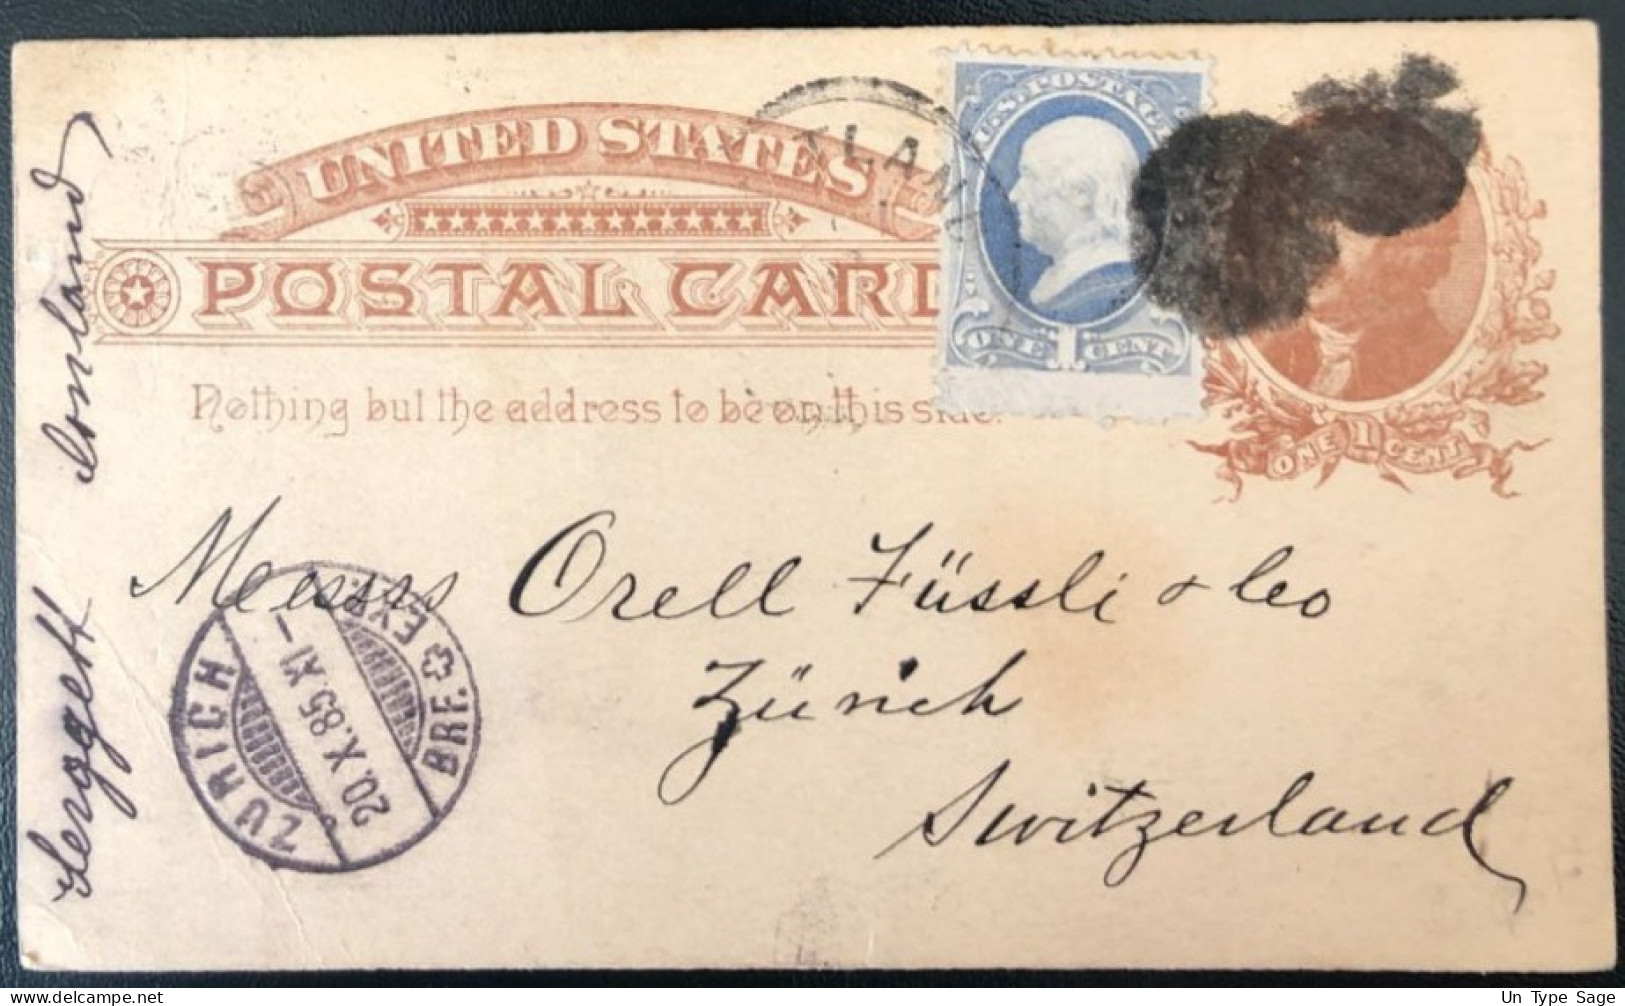 UNITED STATES
POSTAL CARD
Nothing but the address to be on this side.
U.S. POSTAGE
ONE 1 CENT
ONE 1 CENT
Messrs Orell Füssli & Co
Zürich
Switzerland
ZURICH
20.X.85.XI-
BRF. EXP.
Un Type Sage